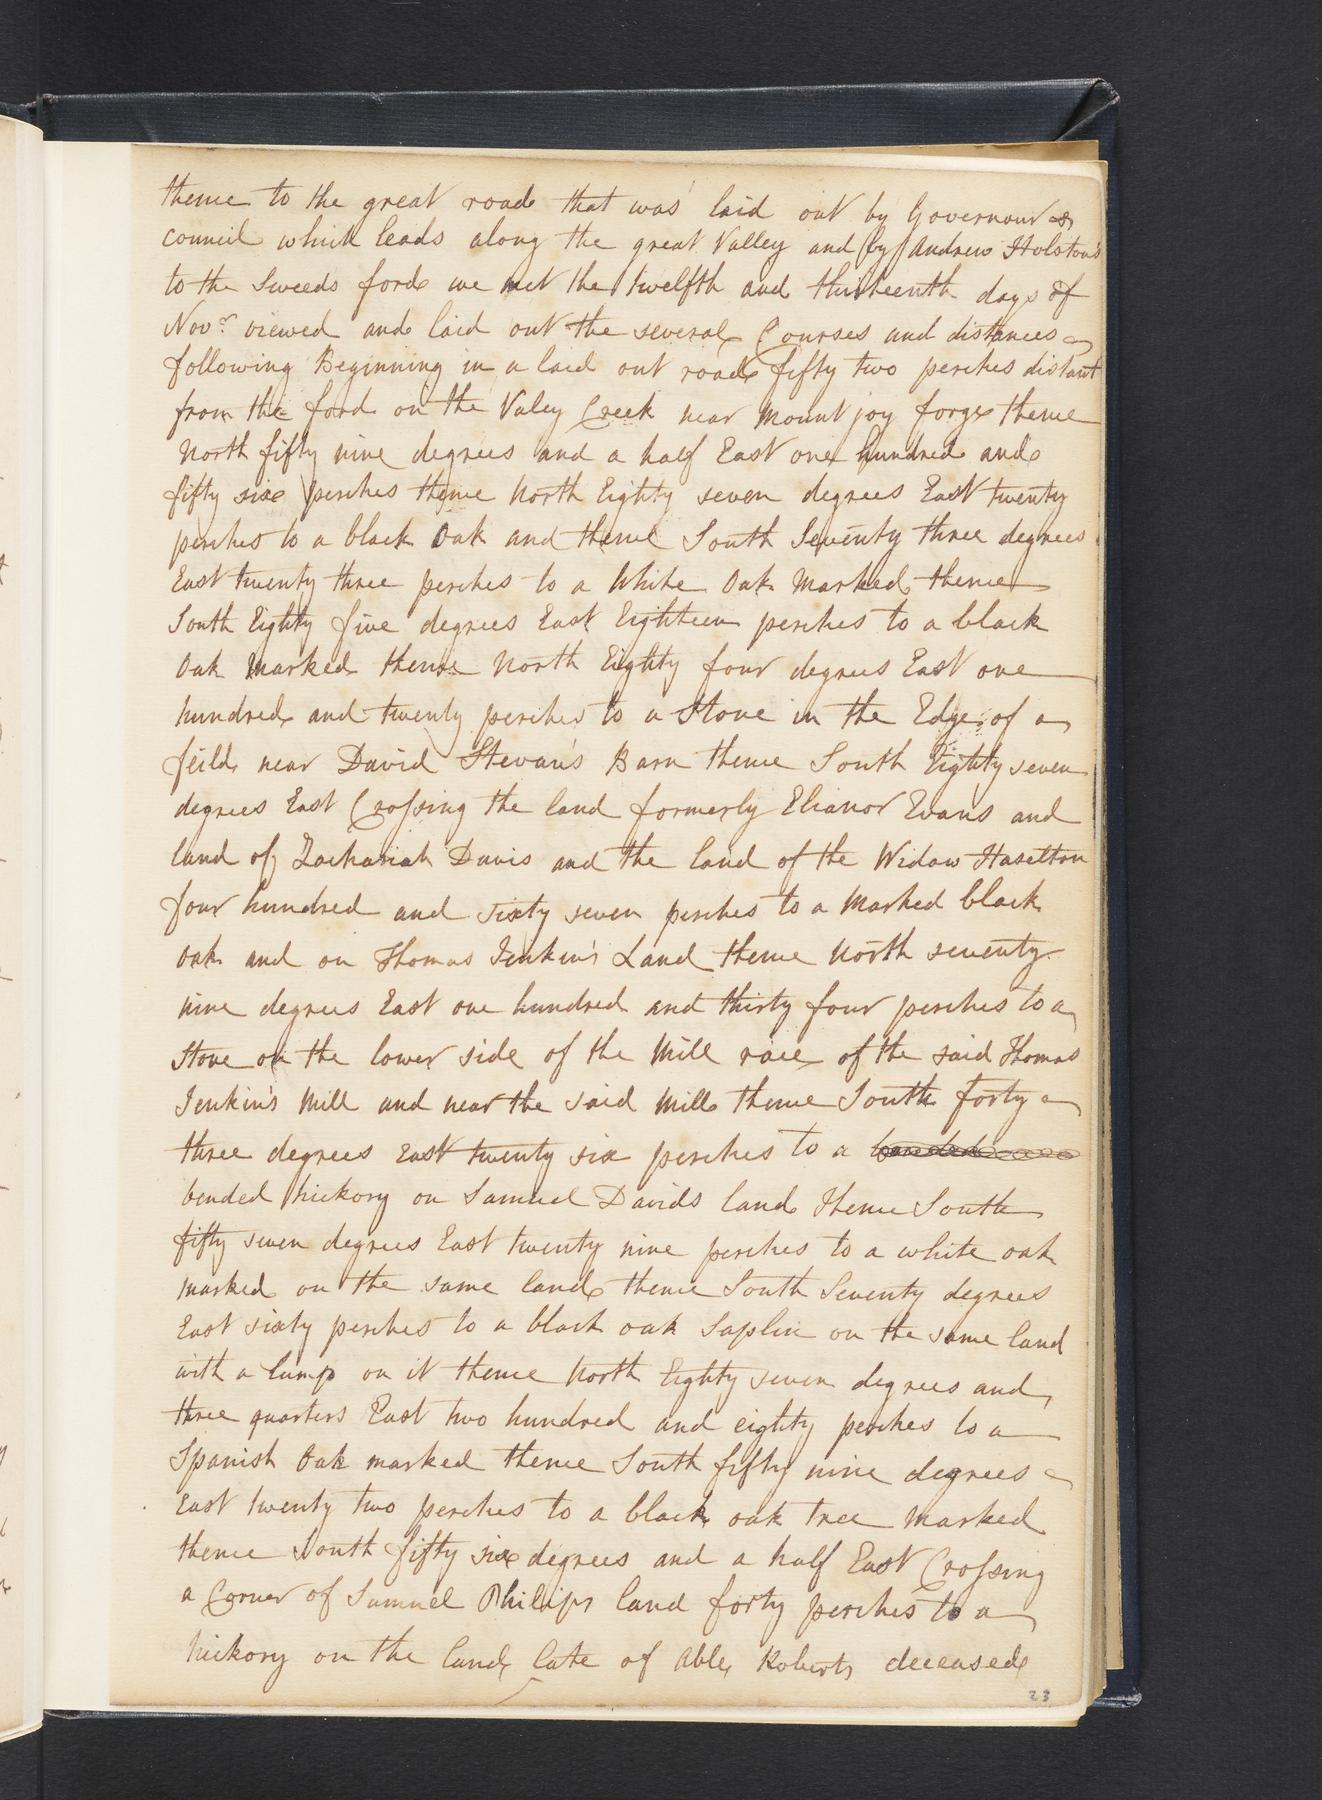 thence to the great road that was laid out by Governour &
council which leads along the great Valley and by Andrew Holston's
to the Sweeds ford we met the twelfth and thirteenth days of
Novr viewed and laid out the several Courses and distances
following Beginning in a laid out road fifty two perches distant
from the ford on the Valey Creek near Mount joy forge thence
North fifty nine degrees and a half East one hundred and
fifty six perches thence North Eighty seven degrees East twenty
perches to a black Oak and thence South Seventy three degrees
East twenty three perches to a White Oak Marked thence
South Eighty five degrees East Eighteen perches to a black
Oak Marked thence North Eighty four degrees East one
hundred and twenty perches to a Stone in the Edge of a
feild near David Stevan's Barn thence South Eighty seven
degrees East Crossing the land formerly Elianor Evans and
land of Zachariah Davis and the land of the Widow Haselton
four hundred and sixty seven perches to a Marked black
oak and on Thomas Jenkin's Land thence North seventy
nine degrees East one hundred and thirty four perches to a
Stone on the lower side of the Mill race of the said Thomas
Jenkin's Mill and near the said Mill thence South forty
three degrees East twenty six perches to a
bended hickory on Samuel Davids land thence South
fifty seven degrees East twenty nine perches to a white oak
marked on the same land thence South Seventy degrees
East sixty perches to a black oak Saplin on the same land
with a lump on it thence North Eighty seven degrees and
three quarters East two hundred and eighty perches to a
Spanish Oak marked thence South fifty nine degrees
East twenty two perches to a black oak tree Marked
thence South fifty six degrees and a half East Crossing
a Corner of Samuel Philips land forty perches to a
hickory on the land late of Able Roberts deceased
23